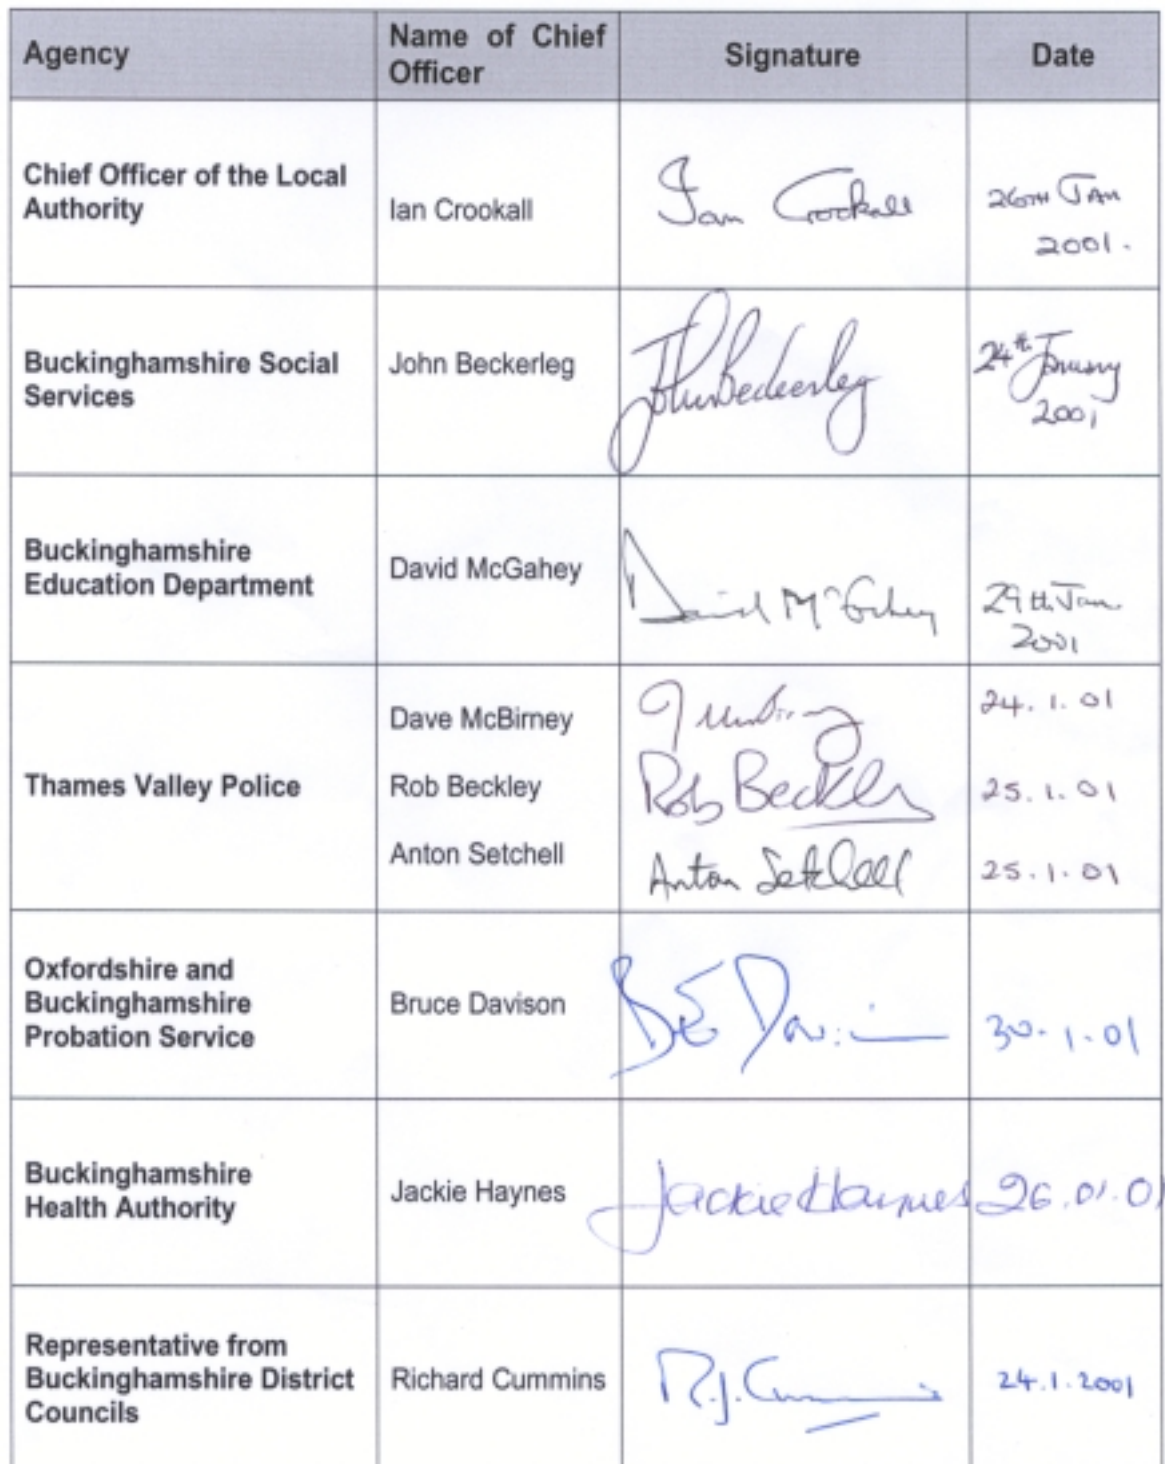 Agency
Name of Chief
Officer
Signature
Date
Chief Officer of the Local
Authority
Ian Crookall
Ian Crookall
26TH JAN
2001.
Buckinghamshire Social
Services
John Beckerleg
John Beckerleg
24th January
2001
Buckinghamshire
Education Department
David McGahey
David McGahey
29th Jan
2001
Thames Valley Police
Dave McBirney
24.1.01
Rob Beckley
Rob Beckley
25.1.01
Anton Setchell
Anton Setchell
25.1.01
Oxfordshire and
Buckinghamshire
Probation Service
Bruce Davison
BE Davison
30.1.01
Buckinghamshire
Health Authority
Jackie Haynes
Jackie Haynes
26.01.01
Representative from
Buckinghamshire District
Councils
Richard Cummins
R.J. Cummins
24.1.2001